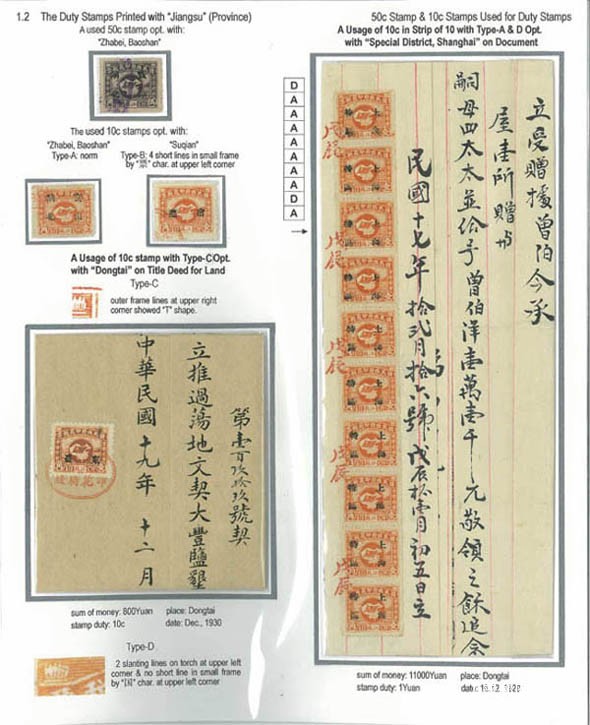 1.2 The Duty Stamps Printed with "Jiangsu" (Province)
A used 50c stamp opt. with:
"Zhabei, Baoshan"
The used 10c stamps opt. with:
"Zhabei, Baoshan"
Type-A: norm
"Suqian"
Type-B: 4 short lines in small frame
by "票" char. at upper left corner
A Usage of 10c stamp with Type-C Opt.
with "Dongtai" on Title Deed for Land
Type-C
outer frame lines at upper right
corner showed "T" shape.
第壹百玖拾玖號契
立推過蕩地文契大豐鹽墾
中華民國十九年 十二月
sum of money: 800Yuan place: Dongtai
stamp duty: 10c date: Dec., 1930
Type-D
2 slanting lines on torch at upper left
corner & no short line in small frame
by "国" char. at upper left corner
50c Stamp & 10c Stamps Used for Duty Stamps
A Usage of 10c in Strip of 10 with Type-A & D Opt.
with "Special District, Shanghai" on Document
D
A
A
A
A
A
A
A
D
A
立受贈據曾伯今承
嗣母四太太並給予曾伯洋壹萬壹千元敬領之餘追念
民國十七年拾弍月拾六號戊辰拾壹月初五日立
上海特區
上海特區
上海特區
上海特區
上海特區
上海特區
上海特區
上海特區
上海特區
上海特區
戊辰
戊辰
戊辰
戊辰
戊辰
sum of money: 11000Yuan place: Dongtai
stamp duty: 1Yuan